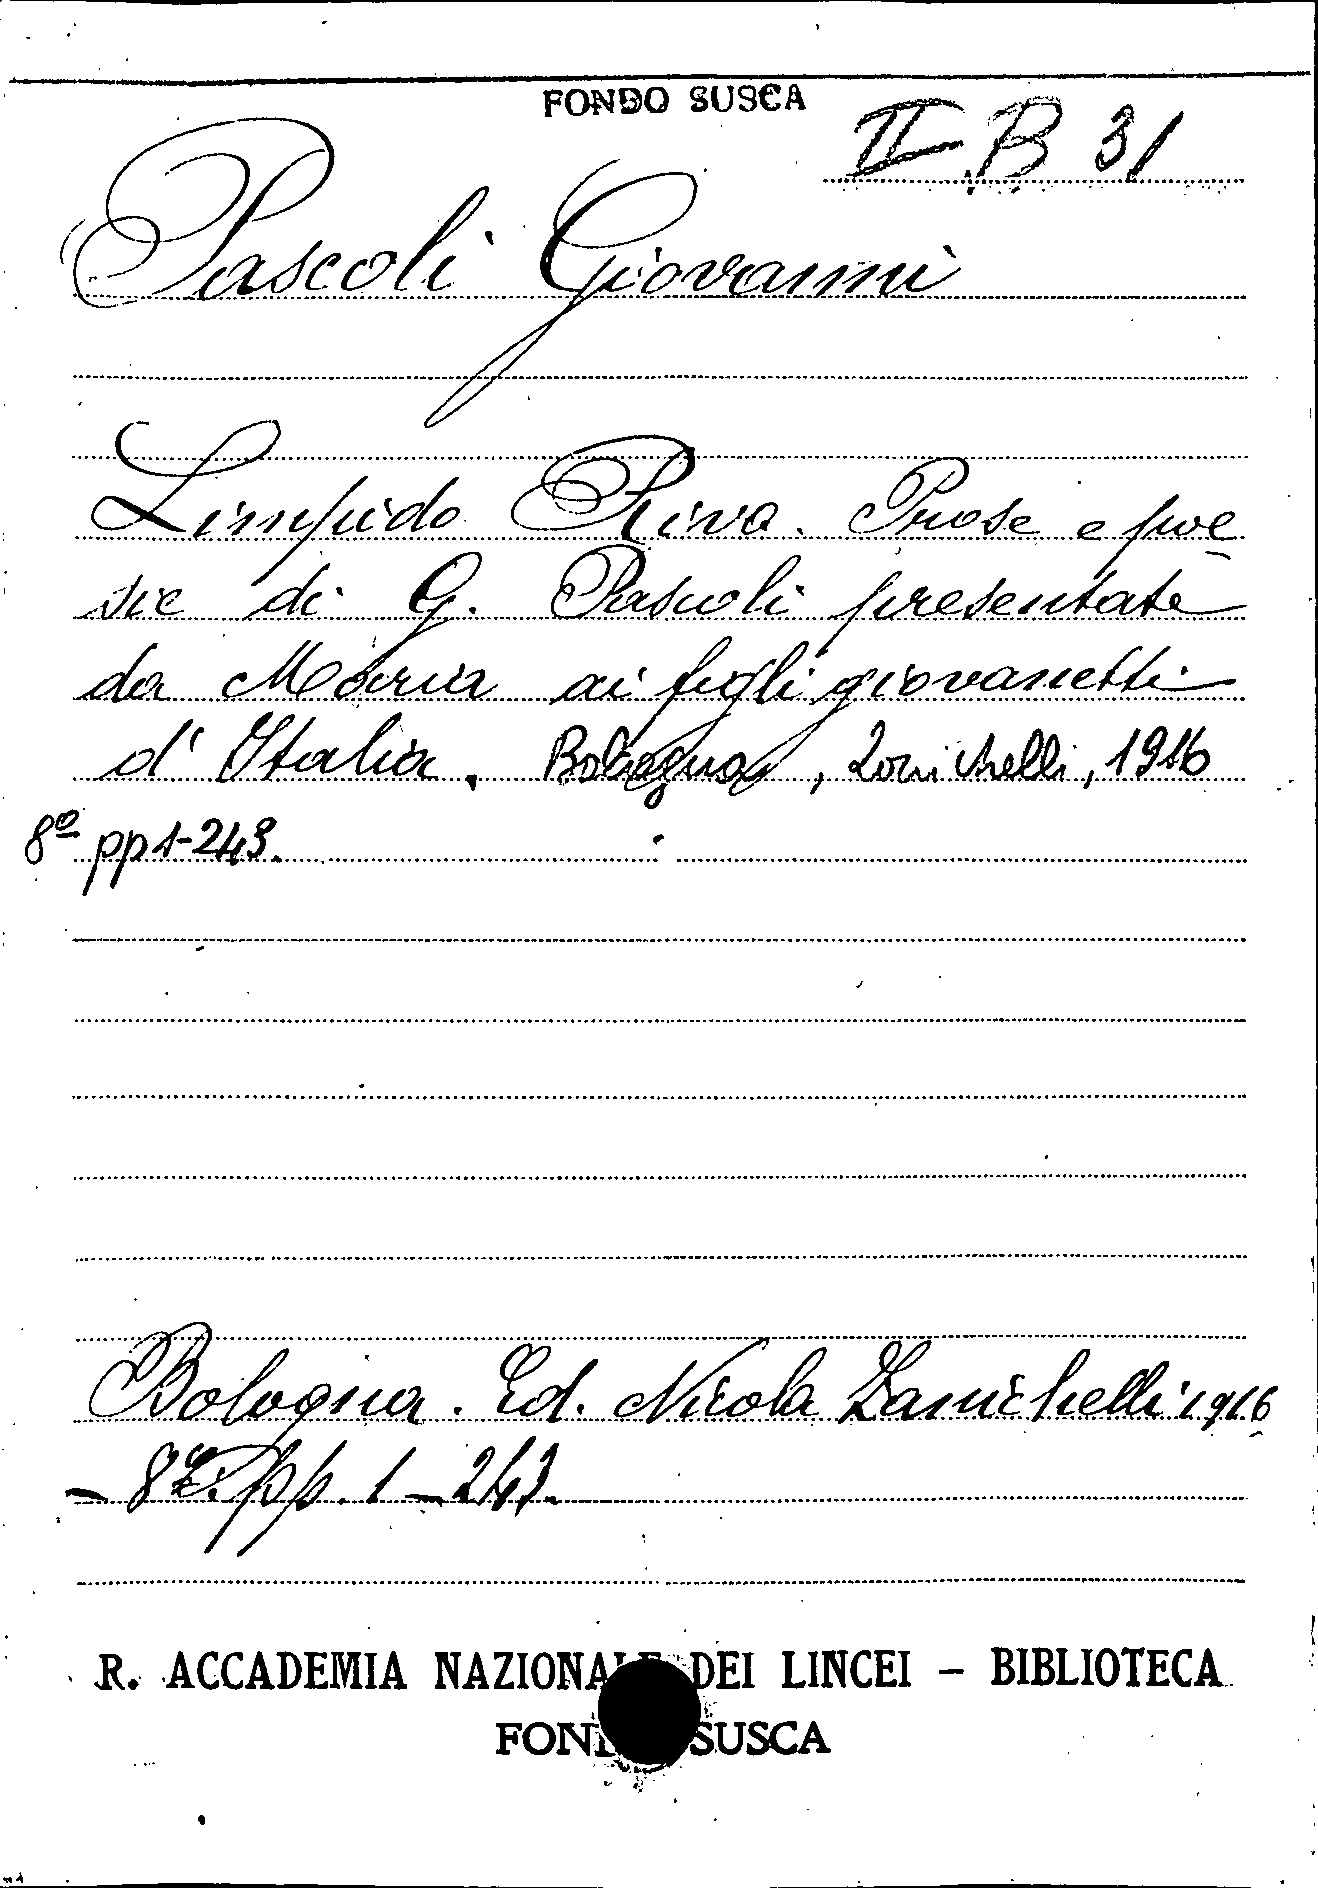 FONDO SUSCA
II B 31
Pascoli Giovanni
Limpido Rivo. Prose e poe
sie di G. Pascoli presentate
da Maria ai figli giovanetti
d'Italia. Bologna, Zanichelli, 1916
8º pp 1-243.
Bologna. Ed. Nicola Zanichelli 1916
– 8º. pp. 1 – 243.
R. ACCADEMIA NAZIONALE DEI LINCEI – BIBLIOTECA
FONDO SUSCA